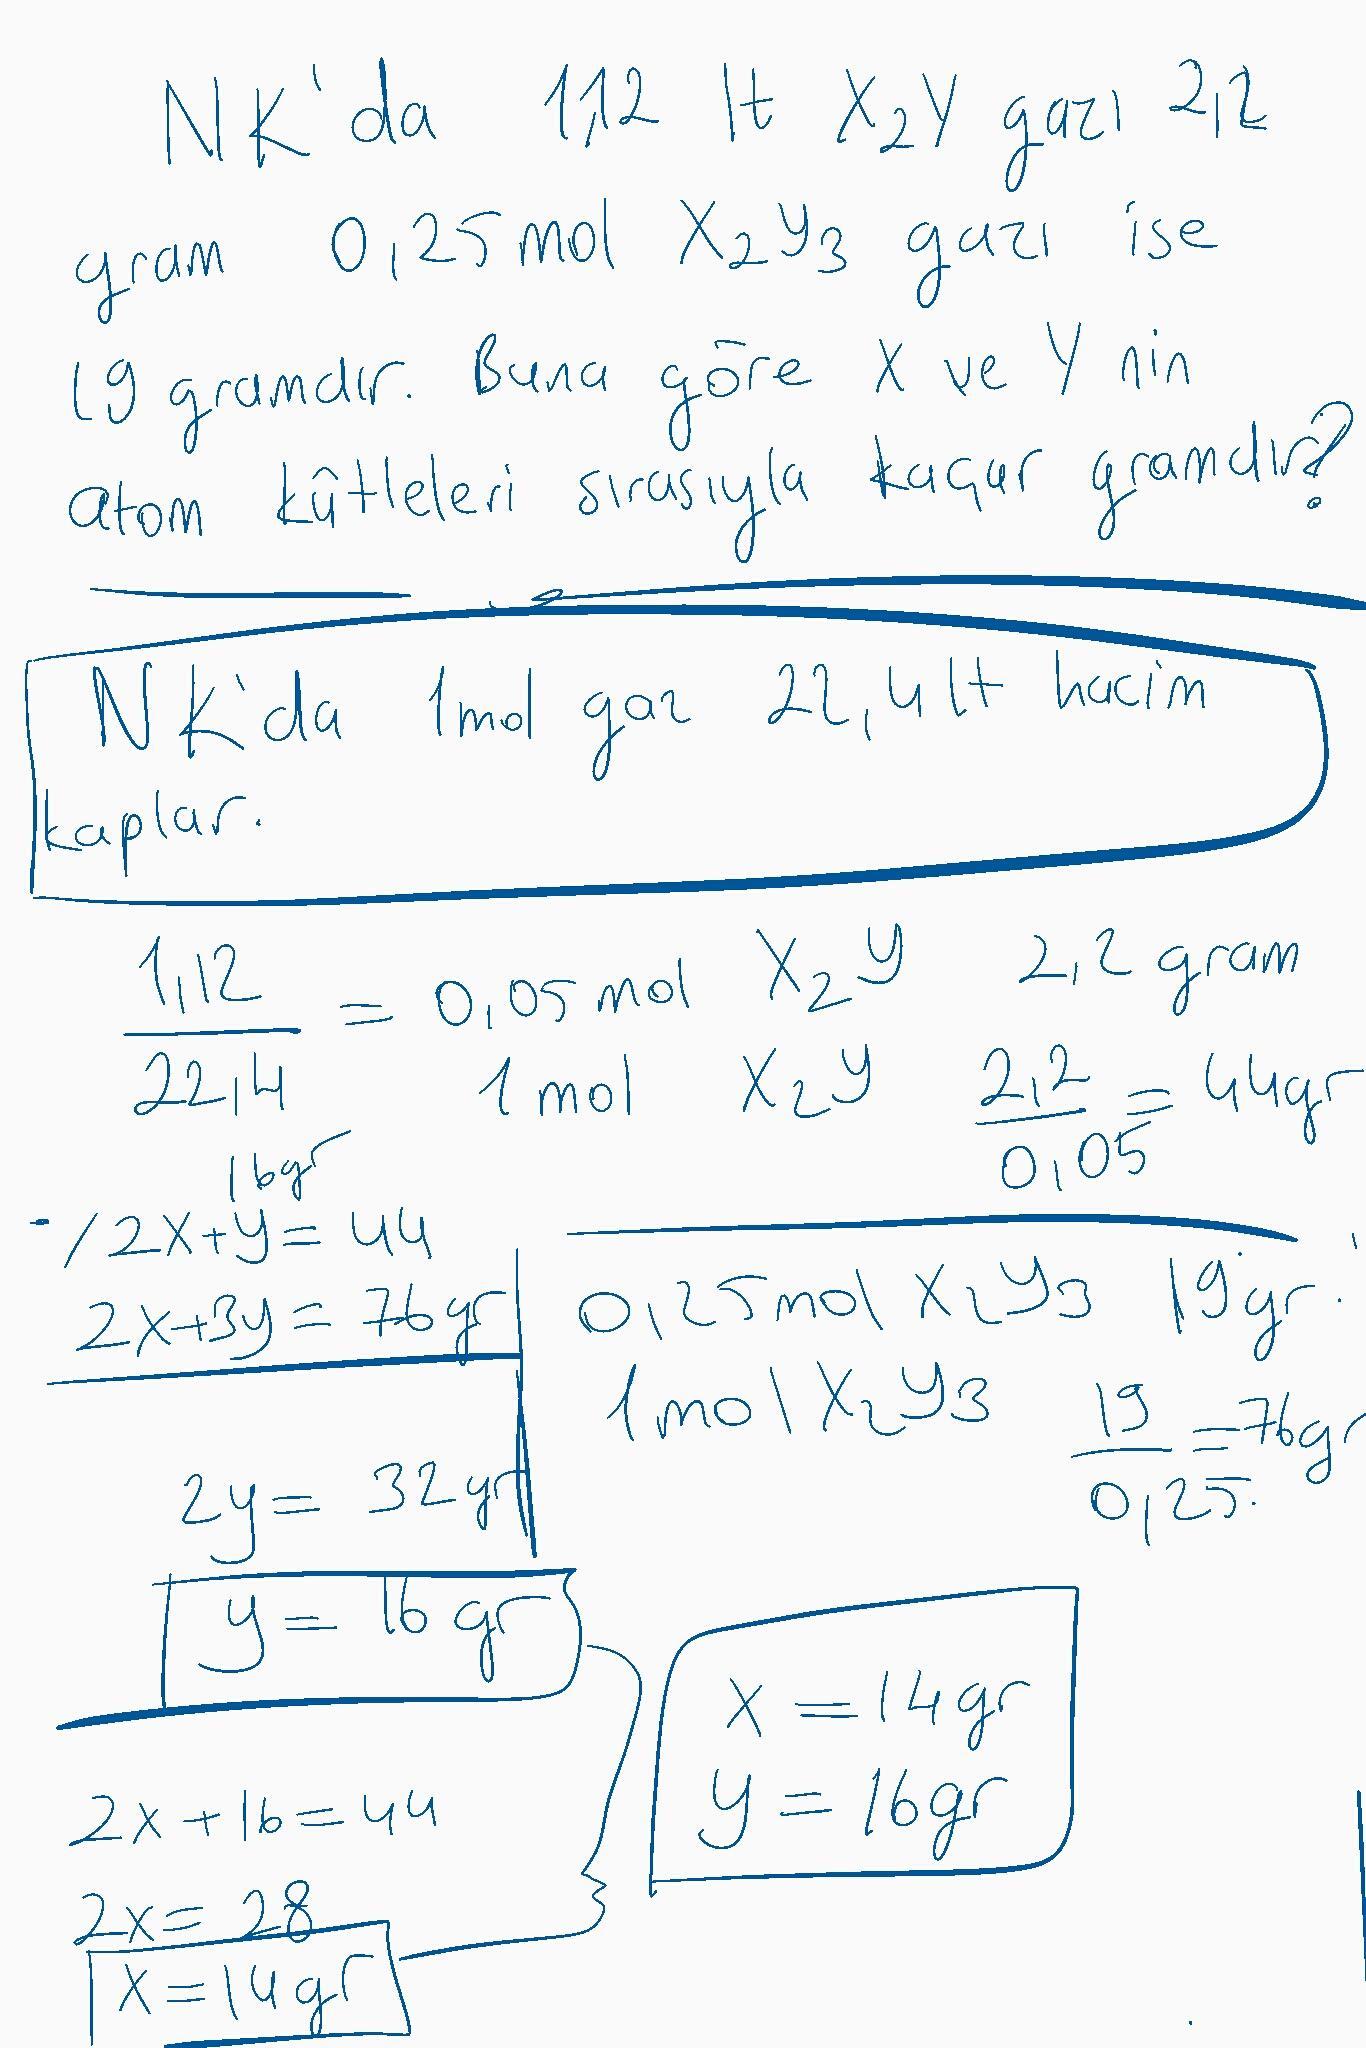 NK'da 1,12 lt X₂Y gazı 2,2
gram 0,25 mol X₂Y₃ gazı ise
19 gramdır. Buna göre X ve Y nin
atom kütleleri sırasıyla kaçar gramdır?
NK'da 1mol gaz 22,4 lt hacim
kaplar.
1,12/22,4 = 0,05 mol X₂Y 2,2 gram
1 mol X₂Y 2,2/0,05 = 44gr
16gr
-/ 2X+Y= 44
2X+3Y= 76gr
2y= 32gr
y= 16 gr
0,25mol X₂Y₃ 19gr.
1mol X₂Y₃ 19/0,25 = 76gr
2x+16=44
2x= 28
x=14gr
x=14gr
y= 16gr